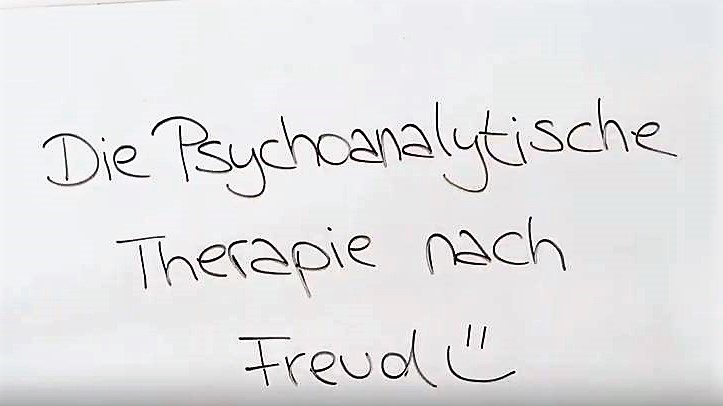 Die Psychoanalytische
Therapie nach
Freud